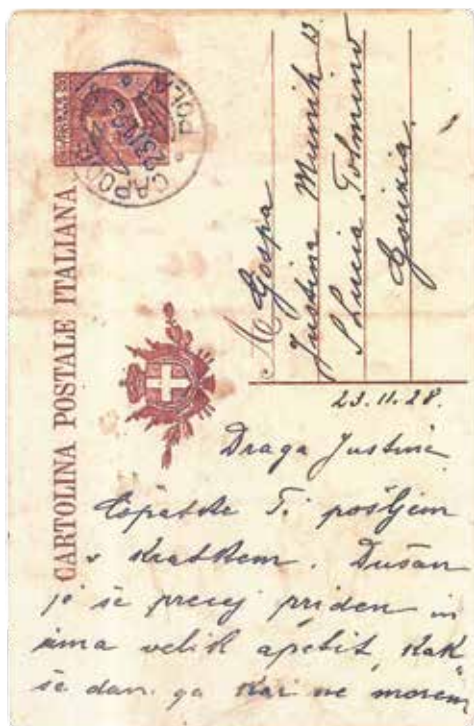 CARTOLINA POSTALE ITALIANA
CAPODIS
POLA
Gospa
Justina Munih 13
S Lucia Tolmino
Gorizia
23.11.28.
Draga Justina
Copatke Ti pošljem
v kratkem. Dušan
je še precej priden in
ima velik apetit, kak-
še dan ga kar ne morem